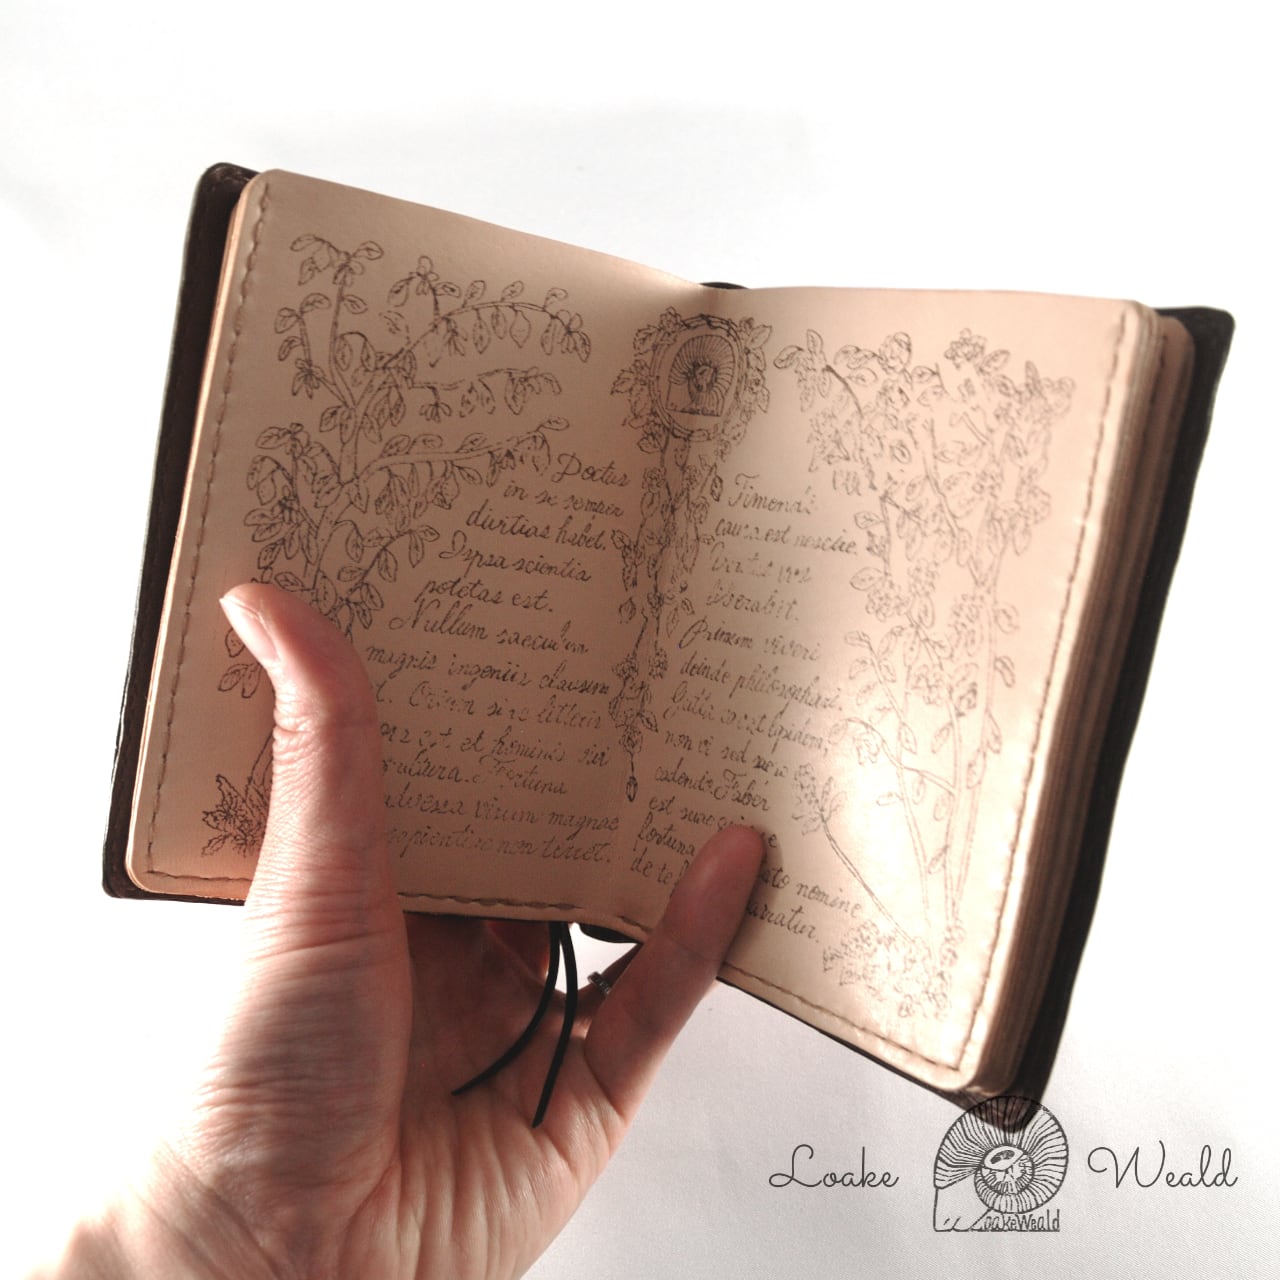 Doctus
in se semper
divitias habet.
Ipsa scientia
potetas est.
Nullum saeculum
magnis ingeniis clausum
t. Otium sine litteris
mors est et hominis vivi
Fortuna
adversa virum magnae
sapientiae non terret.
Timendi
causa est nescire.
Veritas vos
liberabit.
Primum vivere
deinde philosophari.
Gutta cavat lapidem,
non vi sed saepe
cadendo Faber
est suae
fortuna
de te
nomine
narratur.
Loake Weald
LoakeWeald